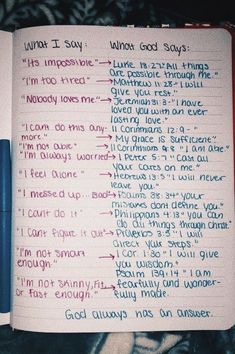 What I Say: What God Says:
"It's impossible" → Luke 18:27 "All things
are possible through me."
"I'm too tired" → Matthew 11:28 "I will
give you rest."
"Nobody loves me" → Jeremiah 31:3 "I have
loved you with an ever
lasting love."
"I can't do this any- → II Corinthians 12:9 -
more." "My grace is sufficient"
"I'm not able" → II Corinthians 9:8 "I am able"
"I'm always worried → I Peter 5:7 "Cast all
your cares on me."
"I feel alone" → Hebrews 13:5 "I will never
leave you."
"I messed up... bad" → Psalms 38:34 "your
mistakes dont define you."
"I can't do it" → Philippians 4:13 "you can
do all things through Christ"
"I can't figure it out" → Proverbs 3:5 "I will
direct your steps."
"I'm not smart → I Cor. 1:30 "I will give
enough." you wisdom."
Psalm 139:14 "I am
"I'm not skinny, Fit, → fearfully and wonder-
or fast enough." fully made.
God always has an answer.